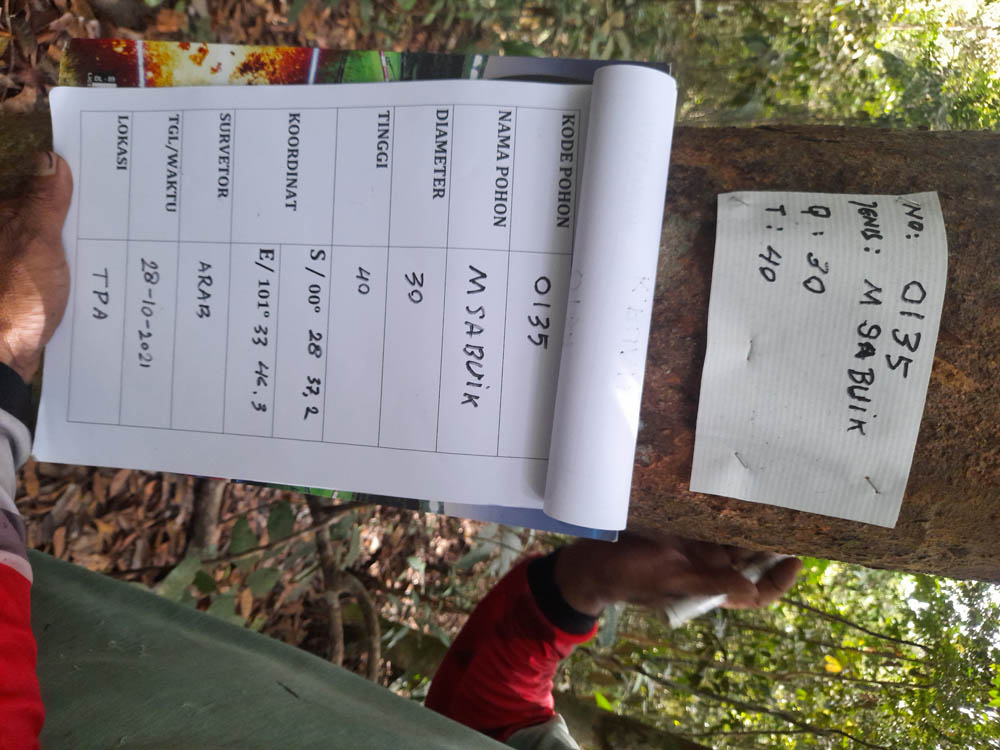 NO: 0135
JENIS: M SABUIK
Q : 30
T : 40
KODE POHON 0135
NAMA POHON M SABUIK
DIAMETER 30
TINGGI 40
KOORDINAT
S / 00° 28 37,2
E/ 101° 33 46.3
SURVETOR ARAB
TGL/WAKTU 28-10-2021
LOKASI TPA